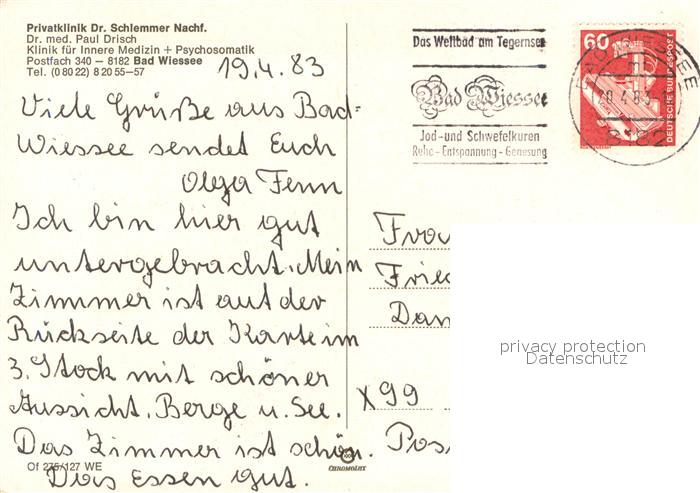 Privatklinik Dr. Schlemmer Nachf.
Dr. med. Paul Drisch
Klinik für Innere Medizin + Psychosomatik
Postfach 340 – 8182 Bad Wiessee
Tel. (0 80 22) 8 20 55–57
19.4.83
Viele Grüße aus Bad-
Wiessee sendet Euch
Olga Fenn
Ich bin hier gut
untergebracht. Mein
Zimmer ist auf der
Rückseite der Karte im
3. Stock mit schöner
Aussicht. Berge u. See.
Das Zimmer ist schön.
Das Essen gut.
Of 275/127 WE
CHROMOLUX
Das Weltbad am Tegernsee
Bad Wiessee
Jod- und Schwefelkuren
Ruhe – Entspannung – Genesung
60
DEUTSCHE BUNDESPOST
4.83
8182
X99
privacy protection
Datenschutz